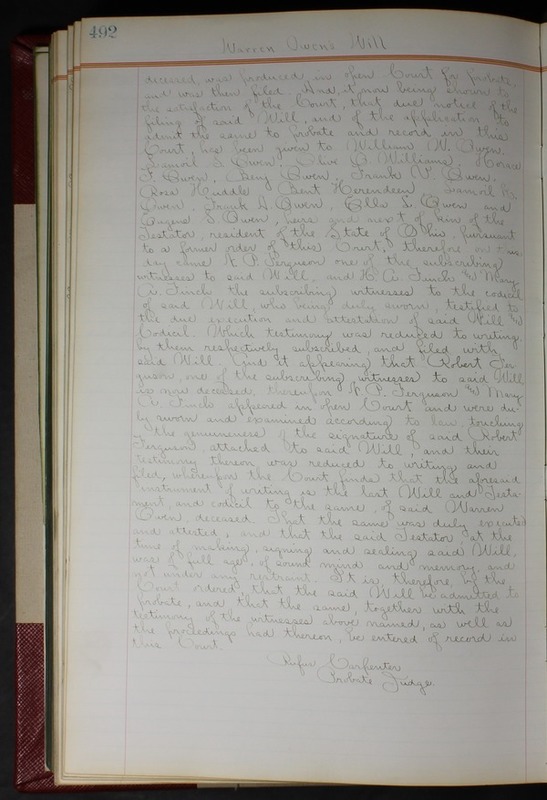 492
Warren Owens Will
deceased, was produced in open Court for probate,
and was then filed. And, it now being shown to
the satisfaction of the Court, that due notice of the
filing of said Will, and of the application to
admit the same to probate and record in this
Court, has been given to William W. Owen,
Samuel S. Owen, Olive O. Williams, Horace
F. Owen, Benj Owen, Frank V. Owen,
Rosa Huddle Bent Herendeen Samuel
Owen, Frank A. Owen, Ella L. Owen and
Eugene S. Owen, heirs and next of kin of the
Testator, resident of the State of Ohio, pursuant
to a former order of this Court, therefore, on this
day came A. P. Ferguson one of the subscribing
witnesses to said Will, and H. A. Finch and Mary
A. Finch the subscribing witnesses to the Codicil
of said Will, who being duly sworn, testified to
the due execution and attestation of said Will and
Codicil Which testimony was reduced to writing,
by them respectively subscribed, and filed with
said Will. And it appearing that Robert Fer
guson, one of the subscribing witnesses to said Will
is now deceased, thereupon A. P. Ferguson and Mary
A. Finch appeared in open Court and were du-
ly sworn and examined according to law, touching
the genuineness of the signature of said Robert
Ferguson, attached to said Will, and their
testimony thereon was reduced to writing and
filed, whereupon the Court finds that the aforesaid
instrument of writing is the last Will and Testa-
ment, and codicil to the same, of said Warren
Owen, deceased. That the same was duly executed
and attested, and that the said Testator at the
time of making, signing and sealing said Will,
was of full age, of sound mind and memory, and
not under any restraint. It is, therefore, by the
Court ordered that the said Will be admitted to
probate, and that the same, together with the
testimony of the witnesses above named, as well as
the proceedings had thereon, be entered of record in
this Court.
Rufus Carpenter
Probate Judge